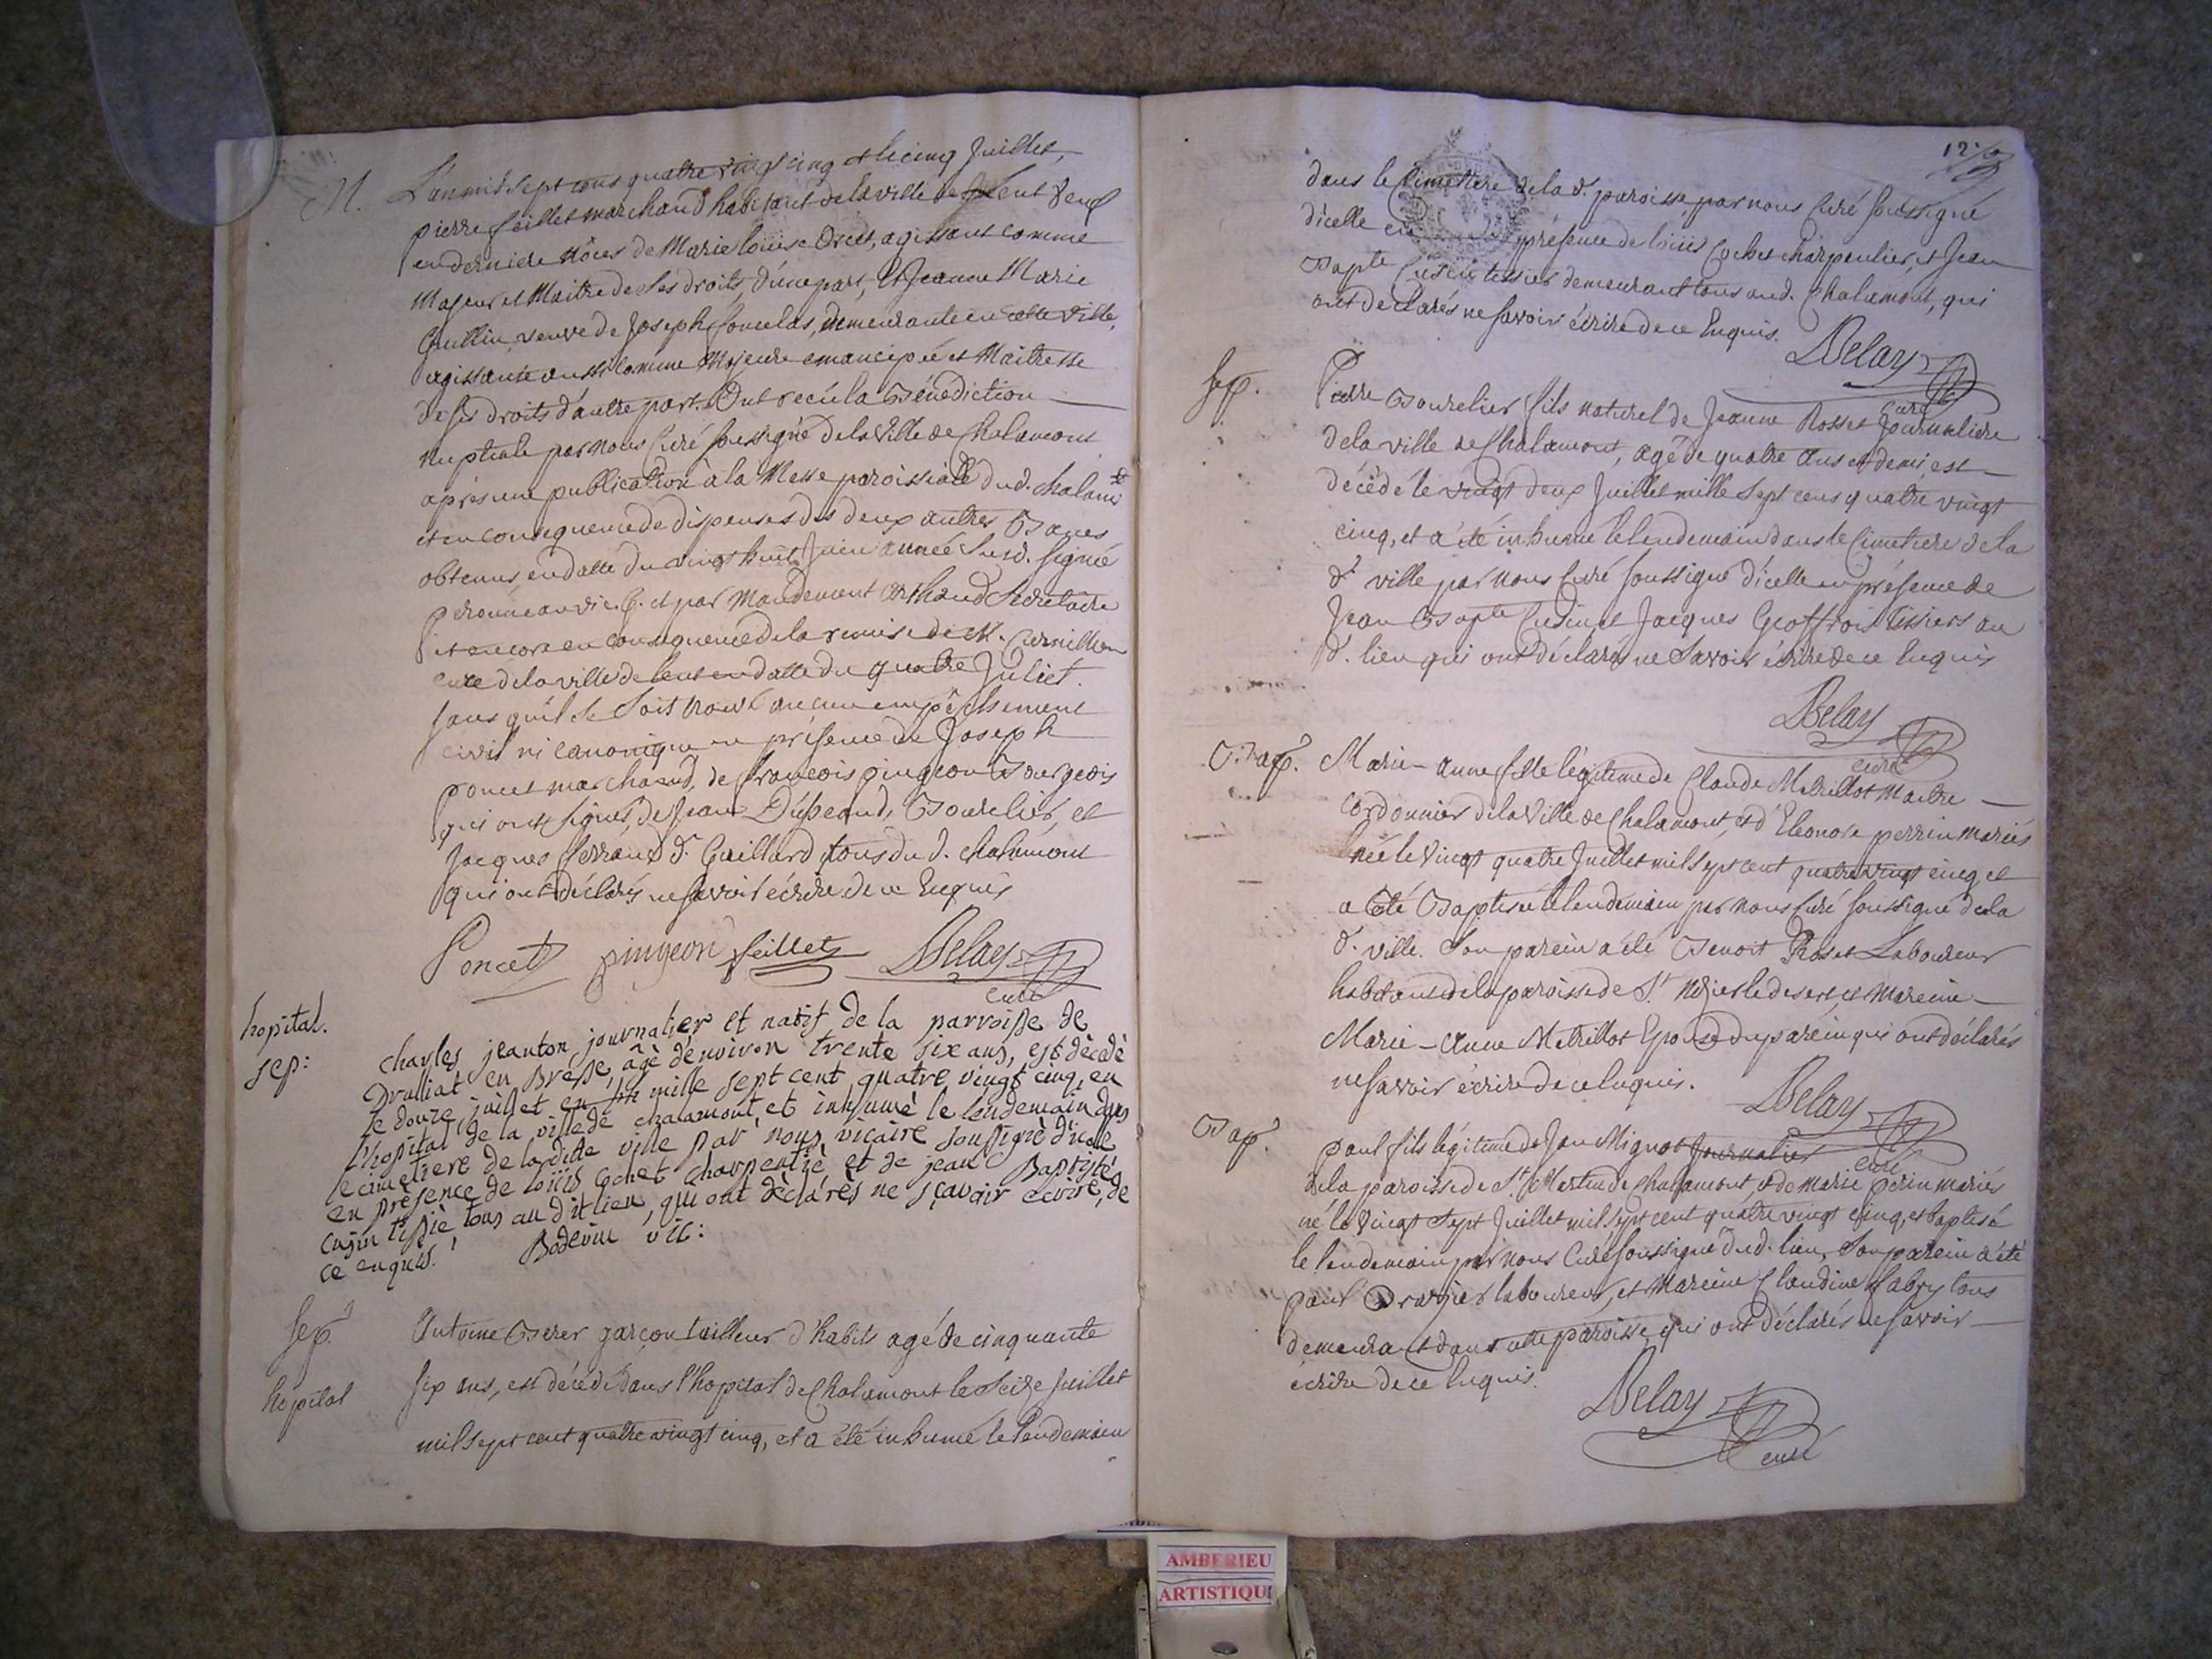 M. L'an mil sept cens quatre vingt cinq et le cinq Juillet,
pierre feillet marchand habitant de la ville de Lent veuf
en derniere nôces de Marie louise Orset, agissant comme
Majeur et Maitre de ses droits, d'une part, Et Jeanne Marie
Guillin, veuve de Joseph, demeurante en cette ville,
agissante aussi comme Majeure emancipée et Maitresse
de ses droits d'autre part. Ont recu la Bénédiction
Nuptiale par nous Curé soussigné de la Ville de Chalamont
après une publication à la Messe paroissialle dud. chalamt
et en consequence de dispenses des deux autres Bancs
obtenus, en datte du vingt huit Juin année susd. signée
peronneau vic. G. et par Mandement Orthaud Secretaire
et encore en consequence de la remise de M.
curé de la ville de lent en datte du quatre Juliet.
sans quil se soit trouvé aucun empêchement
civil ni canonique en présence de Joseph
poncet marchand, de francois pingeon Bourgeois
qui ont signés, de Jean Dupeaud, Bourelier, et
Jacques ferrand d. Gaillard tous du d. chalamont
qui ont déclarés ne savoir écrire de ce Enquis
Poncet pingeon feillet Delay
curé
hopital.
sep: charles jeanton journalier et natif de la parroisse de
Drulliat en Bresse, âgé d'environ trente six ans, est décédé
le douze juillet en mille sept cent quatre vingt cinq, en
l'hopital de la ville de chalamont, et inhumé le lendemain dans
le cimetiere de la ditte ville par nous vicaire soussigné d'icelle
en présence de loüis cochet charpentié et de jean Baptiste
cusin tissié tous au dit lieu, qui ont déclarés ne sçavoir ecrire, de
ce enquis. Bodevin vic:
Sep. Antoine Berer garçon tailleur d'habits agé de cinquante
hopital six ans, est décédé dans l'hopital de Chalamont le seize Juillet
mil sept cent quatre vingt cinq, et a été inhumé le lendemain
12.
dans le Cimetiere de la d. paroisse par nous Curé soussigné
d'icelle en présence de loüis Cochet charpentier, et Jean
Bapte Cusin tissier demeurant tous aud. Chalamont, qui
ont declarés ne savoir écrire de ce Enquis.
Delay
curé
Sep. Pierre Bourelier fils naturel de Jeanne Rosset Journaliere
de la ville de Chalamont, agé de quatre ans et demi est
décédé le vingt deux Juillet mille sept cens quatre vingt
cinq, et a été inhumé le lendemain dans le Cimetiere de la
d. ville par nous Curé soussigné d'icelle en présence de
Jean Bapte Cusin et Jacques Geoffroi tissiers au
d. lieu qui ont déclarés ne savoir écrire de ce Enquis
Delay
curé
Bap. Marie-anne fille légitime de Claude Metrillot Maitre
Cordonnier de la Ville de Chalamont, et d'Eleonore perrin mariés
née le vingt quatre Juillet mil sept cent quatre vingt cinq et
a été Baptisée le lendemain par nous Curé soussigné de la
d. ville. Son parein a été Benoit Roset Laboureur
habitant de la paroisse de St. Nizier le desert et Mareine
Marie-Anne Metrillot Epouse du parein qui ont déclarés
ne savoir écrire de ce Enquis.
Delay
curé
Bap. paul fils légitime de Jean Mignot Journalier
de la paroisse de St. Martin de Chalamont, et de Marie perrin mariés
né le Vingt Sept Juillet mil sept cent quatre vingt cinq, et baptisé
le lendemain par nous Curé soussigné dud. lieu, son parein a été
paul laboureur, et Mareine Claudine fabry tous
demeurant dans cette paroisse qui ont déclarés ne savoir
écrire de ce Enquis.
Delay
curé
AMBERIEU
ARTISTIQU